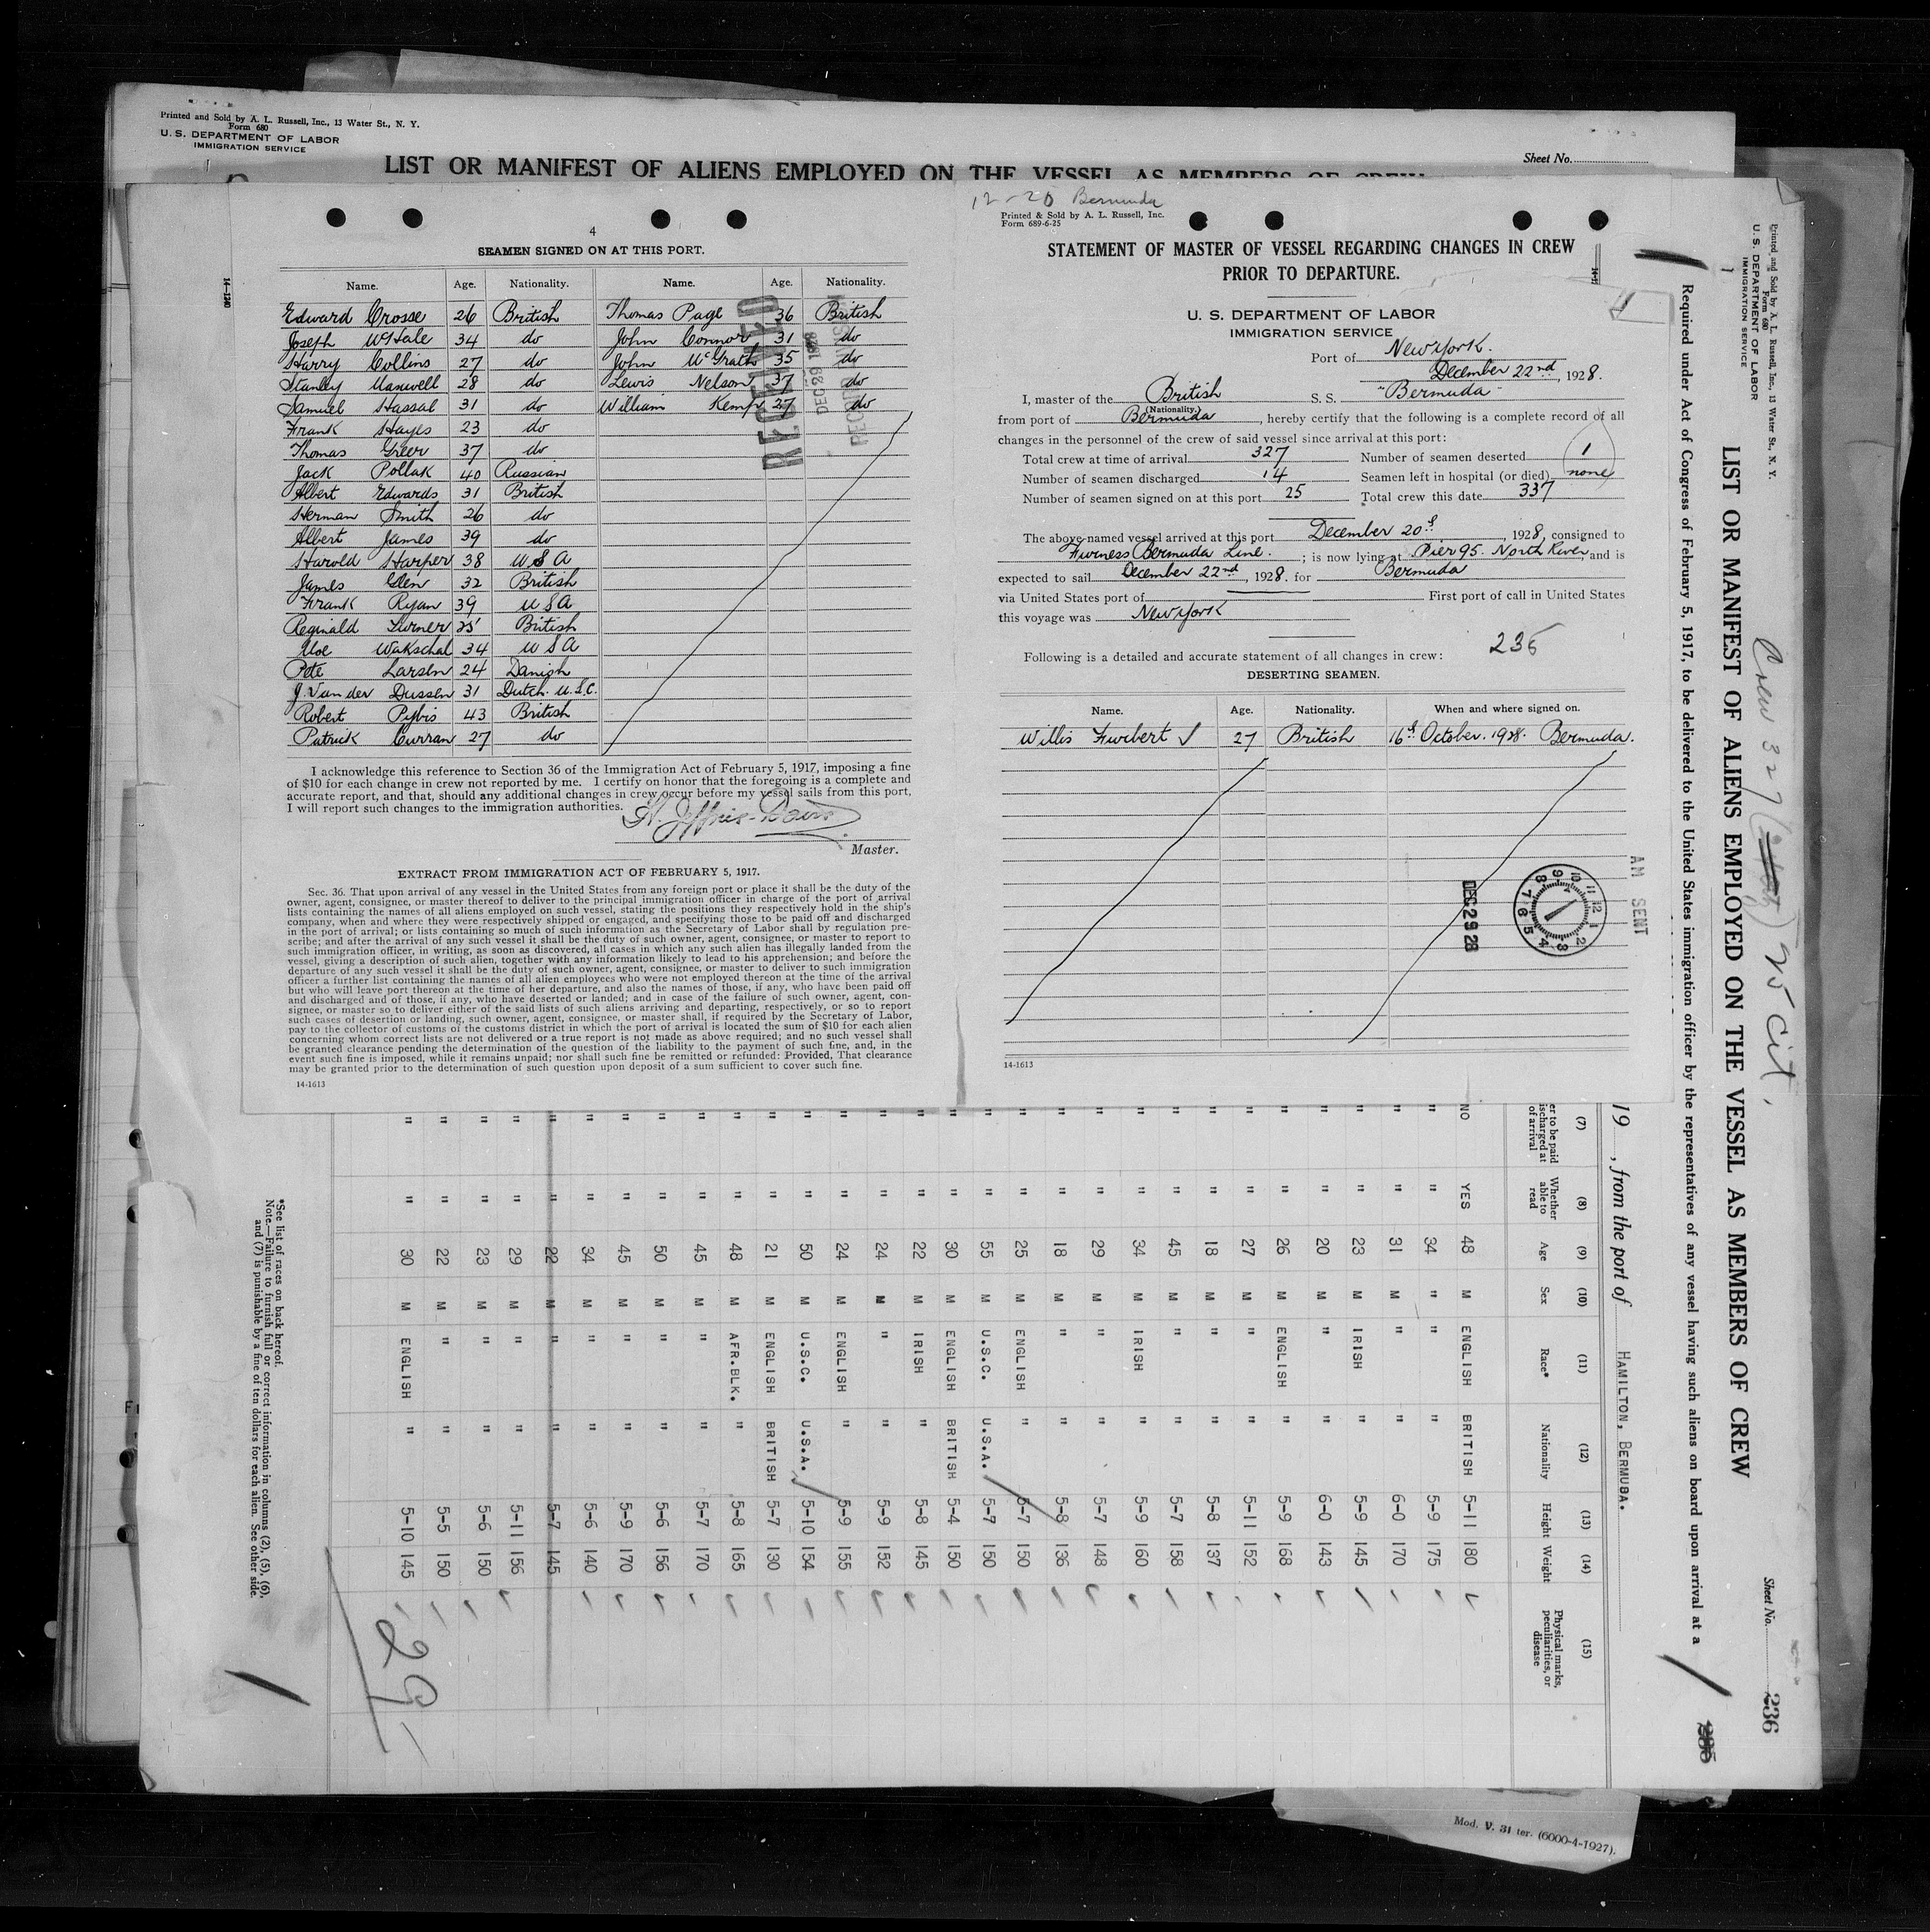 Printed and Sold by A. L. Russell, Inc., 13 Water St., N. Y.
Form 680
U. S. DEPARTMENT OF LABOR
IMMIGRATION SERVICE
Sheet No.
LIST OR MANIFEST OF ALIENS EMPLOYED ON THE VESSEL AS MEMBERS OF CREW
4
SEAMEN SIGNED ON AT THIS PORT.
14-1240
Name. Age. Nationality. Name. Age. Nationality.
Edward Crosse 26 British Thomas Page 36 British
Joseph McHale 34 do John Connor 31 do
Harry Collins 27 do John McGrath 35 do
Stanley Maxwell 28 do Lewis Nelson 37 do
Samuel Hassal 31 do William Kemp 27 do
Frank Hayes 23 do
Thomas Greer 37 do
Jack Pollak 40 Russian
Albert Edwards 31 British
Herman Smith 26 do
Albert James 39 do
Harold Harper 38 U S A
James Glen 32 British
Frank Ryan 39 U S A
Reginald Turner 25 British
Moe Wakschal 34 U S A
Pete Larsen 24 Danish
J. Van der Dussen 31 Dutch. U.S.C.
Robert Pybis 43 British
Patrick Curran 27 do
RECEIVED
DEC 29 1928
I acknowledge this reference to Section 36 of the Immigration Act of February 5, 1917, imposing a fine
of $10 for each change in crew not reported by me. I certify on honor that the foregoing is a complete and
accurate report, and that, should any additional changes in crew occur before my vessel sails from this port,
I will report such changes to the immigration authorities.
H. Jeffries-Davis
Master.
EXTRACT FROM IMMIGRATION ACT OF FEBRUARY 5, 1917.
Sec. 36. That upon arrival of any vessel in the United States from any foreign port or place it shall be the duty of the
owner, agent, consignee, or master thereof to deliver to the principal immigration officer in charge of the port of arrival
lists containing the names of all aliens employed on such vessel, stating the positions they respectively hold in the ship's
company, when and where they were respectively shipped or engaged, and specifying those to be paid off and discharged
in the port of arrival; or lists containing so much of such information as the Secretary of Labor shall by regulation pre-
scribe; and after the arrival of any such vessel it shall be the duty of such owner, agent, consignee, or master to report to
such immigration officer, in writing, as soon as discovered, all cases in which any such alien has illegally landed from the
vessel, giving a description of such alien, together with any information likely to lead to his apprehension; and before the
departure of any such vessel it shall be the duty of such owner, agent, consignee, or master to deliver to such immigration
officer a further list containing the names of all alien employees who were not employed thereon at the time of the arrival
but who will leave port thereon at the time of her departure, and also the names of those, if any, who have been paid off
and discharged and of those, if any, who have deserted or landed; and in case of the failure of such owner, agent, con-
signee, or master so to deliver either of the said lists of such aliens arriving and departing, respectively, or so to report
such cases of desertion or landing, such owner, agent, consignee, or master shall, if required by the Secretary of Labor,
pay to the collector of customs of the customs district in which the port of arrival is located the sum of $10 for each alien
concerning whom correct lists are not delivered or a true report is not made as above required; and no such vessel shall
be granted clearance pending the determination of the question of the liability to the payment of such fine, and, in the
event such fine is imposed, while it remains unpaid; nor shall such fine be remitted or refunded: Provided, That clearance
may be granted prior to the determination of such question upon deposit of a sum sufficient to cover such fine.
14-1613
12-20 Bermuda
Printed & Sold by A. L. Russell, Inc.
Form 689-6-25
STATEMENT OF MASTER OF VESSEL REGARDING CHANGES IN CREW
PRIOR TO DEPARTURE.
U. S. DEPARTMENT OF LABOR
IMMIGRATION SERVICE
Port of New York.
December 22nd, 1928.
I, master of the British S. S. "Bermuda"
(Nationality.)
from port of Bermuda, hereby certify that the following is a complete record of all
changes in the personnel of the crew of said vessel since arrival at this port:
Total crew at time of arrival 327 Number of seamen deserted 1
Number of seamen discharged 14 Seamen left in hospital (or died) none
Number of seamen signed on at this port 25 Total crew this date 337
The above-named vessel arrived at this port December 20th, 1928, consigned to
Furness Bermuda Line. ; is now lying at Pier 95. North River and is
expected to sail December 22nd, 1928. for Bermuda
via United States port of First port of call in United States
this voyage was New York
236
Following is a detailed and accurate statement of all changes in crew:
DESERTING SEAMEN.
Name. Age. Nationality. When and where signed on.
Willis Furbert 27 British 16th October. 1928. Bermuda.
DEC 29 28
AM SENT
12 1 2 3 4 5 6 7 8 9 10 11
14-1613
Printed and Sold by A. L. Russell, Inc., 13 Water St., N. Y.
Form 680
U. S. DEPARTMENT OF LABOR
IMMIGRATION SERVICE
Crew 327 25 Cit.
Sheet No.
236
LIST OR MANIFEST OF ALIENS EMPLOYED ON THE VESSEL AS MEMBERS OF CREW
Required under Act of Congress of February 5, 1917, to be delivered to the United States immigration officer by the representatives of any vessel having such aliens on board upon arrival at a
19 , from the port of HAMILTON, BERMUBA.
(7) (8) (9) (10) (11) (12) (13) (14) (15)
er to be paid discharged at of arrival Whether able to read Age Sex Race* Nationality Height Weight Physical marks, peculiarities, or disease
NO YES 48 M ENGLISH BRITISH 5-11 180
" " 34 " " " 5-9 175
" " 31 M " " 6-0 170
" " 23 M IRISH " 5-9 145
" " 20 M " " 6-0 143
" " 26 M ENGLISH " 5-9 168
" " 27 M " " 5-11 152
" " 18 M " " 5-8 137
" " 45 M " " 5-7 158
" " 34 M IRISH " 5-9 160
" " 29 M " " 5-7 148
" " 18 M " " 5-8 136
" " 25 M ENGLISH " 5-7 150
" " 55 M U.S.C. U.S.A. 5-7 150
" " 30 M ENGLISH BRITISH 5-4 150
" " 22 M IRISH " 5-8 145
" " 24 M " " 5-9 152
" " 24 M ENGLISH " 5-9 155
" " 50 M U.S.C. U.S.A. 5-10 154
" " 21 M ENGLISH BRITISH 5-7 130
" " 48 M AFR.BLK. " 5-8 165
" " 45 M " " 5-7 170
" " 50 M " " 5-6 156
" " 45 M " " 5-9 170
" " 34 M " " 5-6 140
" " 22 M " " 5-7 145
" " 29 M " " 5-11 156
" " 23 M " " 5-6 150
" " 22 M " " 5-5 150
" " 30 M ENGLISH " 5-10 145
29
*See list of races on back hereof.
Note.—Failure to furnish full or correct information in columns (2), (5), (6),
and (7) is punishable by a fine of ten dollars for each alien. See other side.
Mod. V. 31 ter. (6000-4-1927).